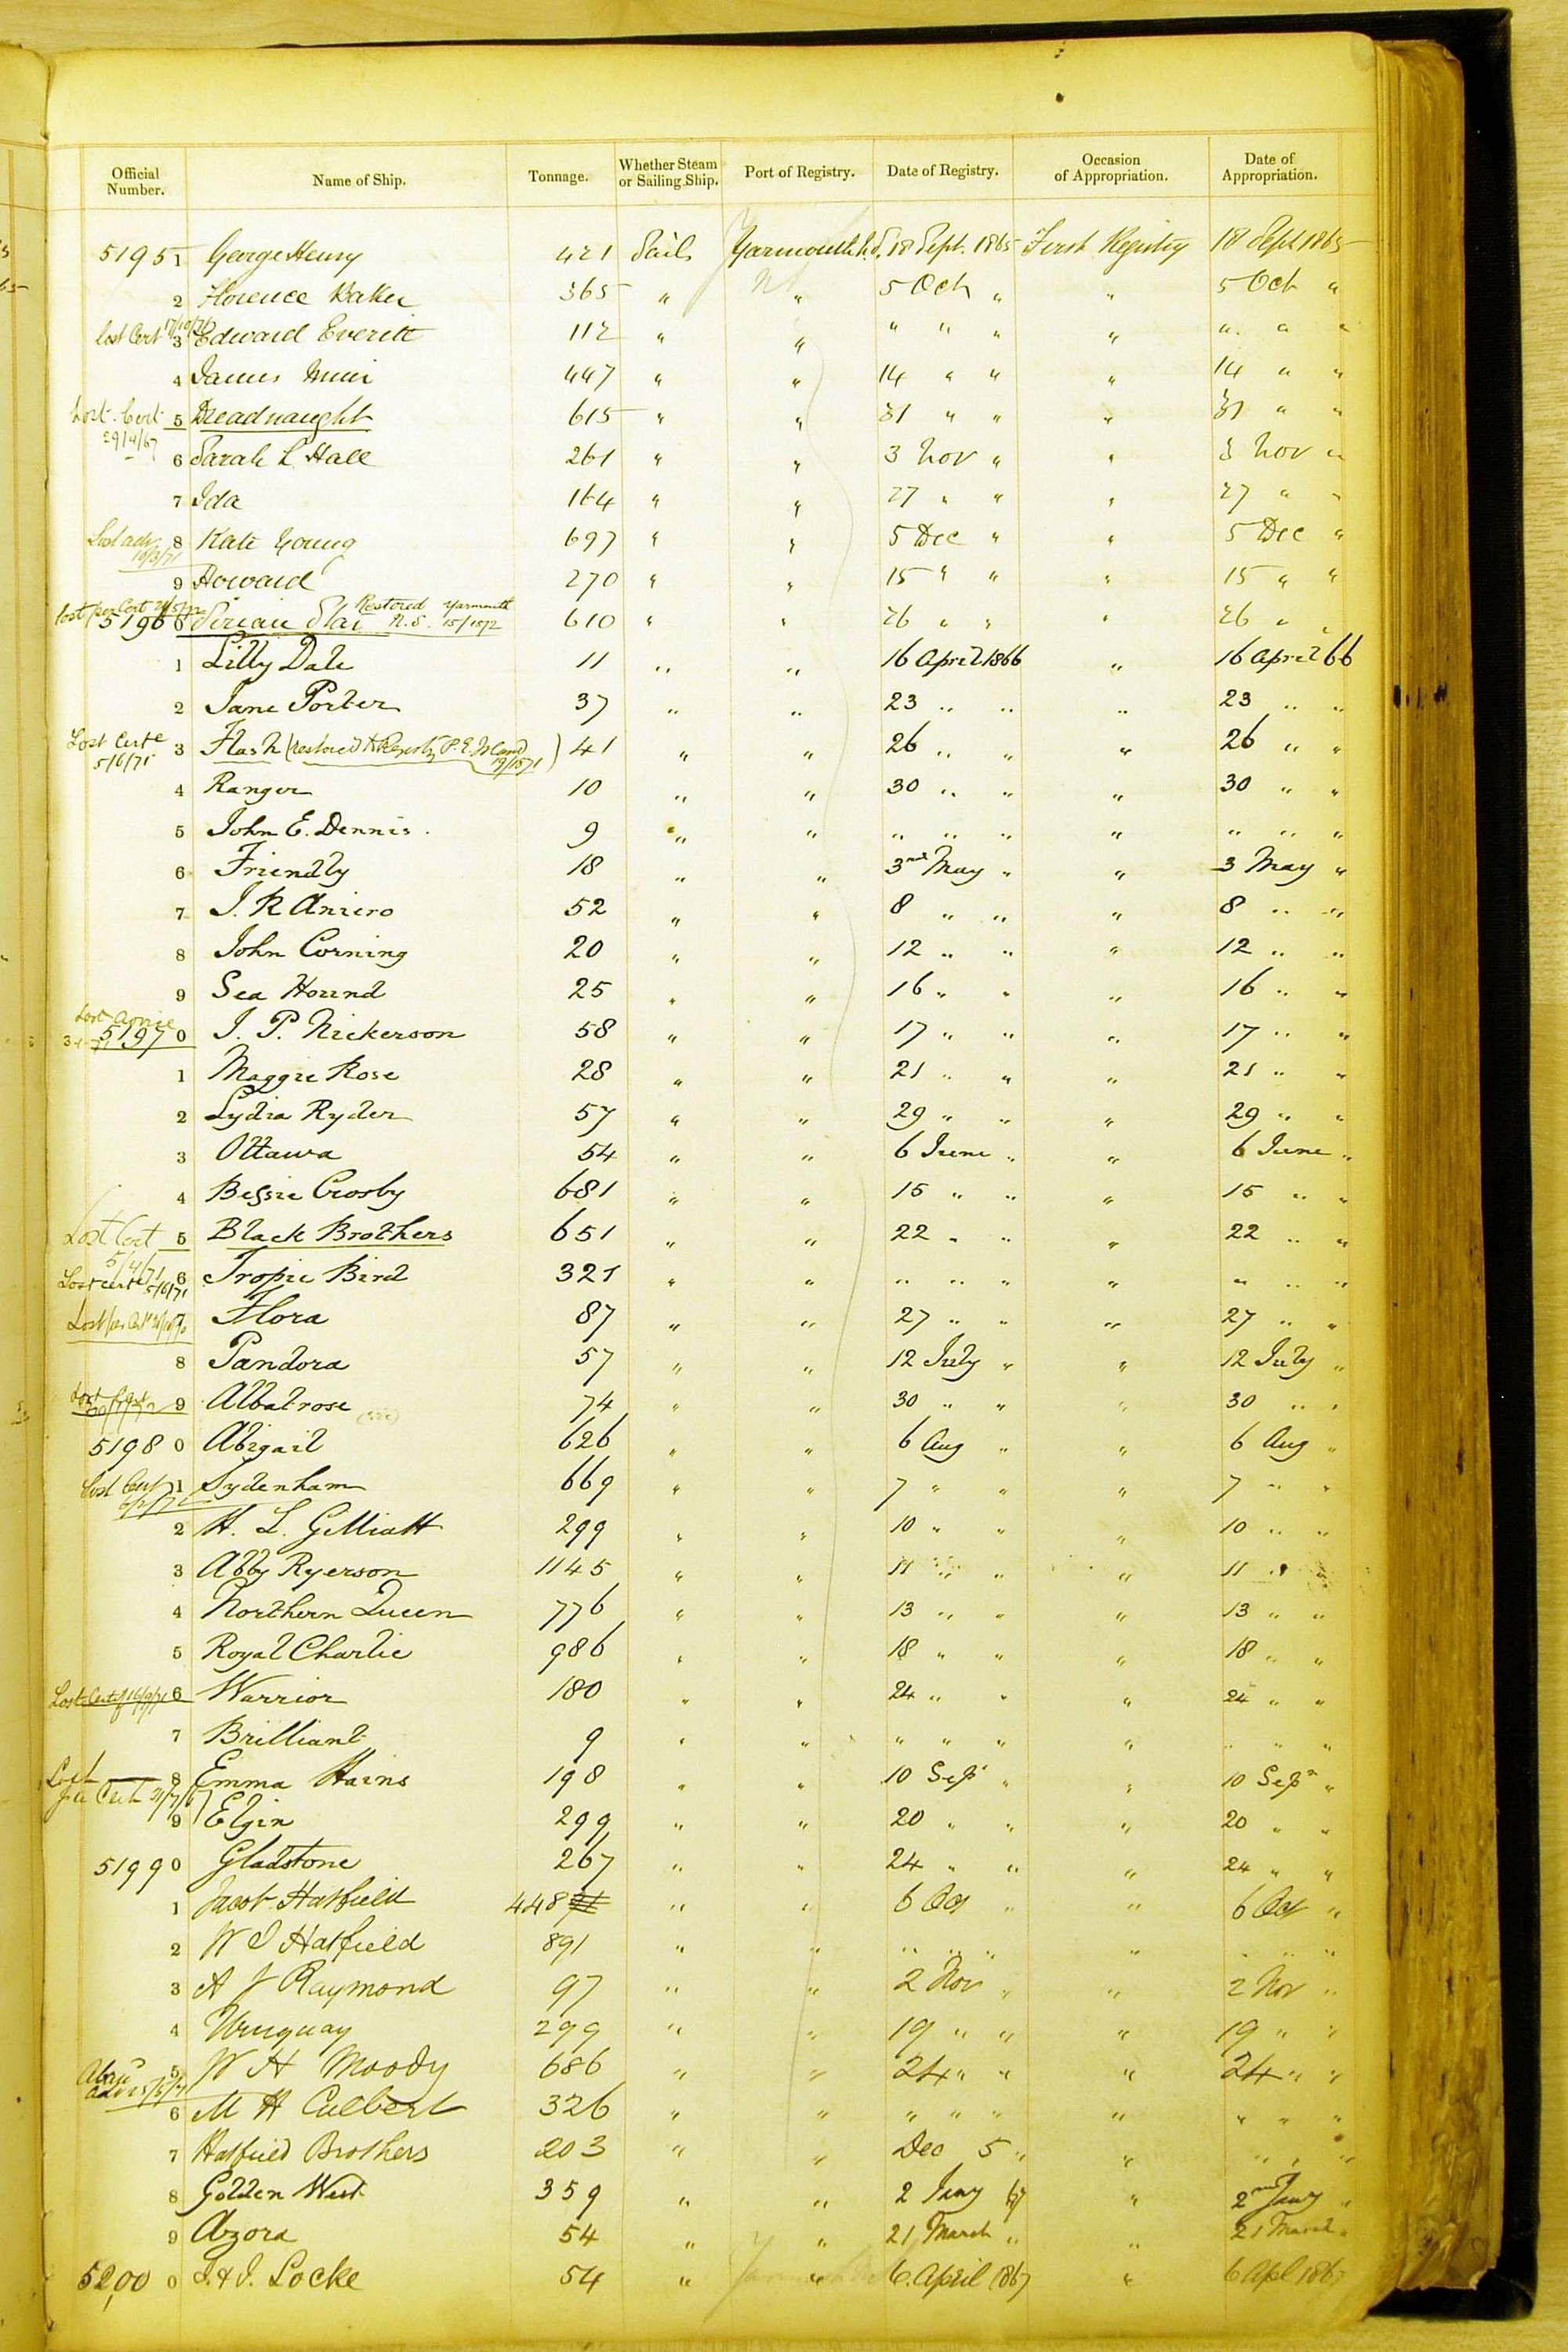 Official Number. Name of Ship. Tonnage. Whether Steam or Sailing Ship. Port of Registry. Date of Registry. Occasion of Appropriation. Date of Appropriation.
51951 George Henry 421 Sail Yarmouth N.S. 18 Sept. 1865 First Registry 18 Sept 1865
2 Florence Baker 365 " " 5 Oct " " 5 Oct "
Lost Cert 17/10/71 3 Edward Everett 112 " " " " " " " " "
4 James Muir 447 " " 14 " " " 14 " "
Lost. Cert 29/4/67 5 Dreadnaught 615 " " 31 " " " 31 " "
6 Sarah L Hall 261 " " 3 Nov " " 3 Nov "
7 Ida 164 " " 27 " " " 27 " "
Lost adv. 8 Kate Young 697 " " 5 Dec " " 5 Dec "
9 Howard 270 " " 15 " " " 15 " "
lost per Cert 51960 Star Restored Yarmouth N.S. 15/1872 610 " " 26 " " " 26 " "
1 Lilly Dale 11 " " 16 April 1866 " 16 April 66
2 Jane Porter 37 " " 23 " " " 23 " "
Lost Certe 5/6/71 3 Flash (restored to Registry P.E. Island 19/1871) 41 " " 26 " " " 26 " "
4 Ranger 10 " " 30 " " " 30 " "
5 John E. Dennis. 9 " " " " " " " " "
6 Friendly 18 " " 3rd May " " 3 May "
7 J. R Aniero 52 " " 8 " " " 8 " "
8 John Corning 20 " " 12 " " " 12 " "
9 Sea Hound 25 " " 16 " " " 16 " "
Lost 51970 J. P. Nickerson 58 " " 17 " " " 17 " "
1 Maggie Rose 28 " " 21 " " " 21 " "
2 Lydia Ryder 57 " " 29 " " " 29 " "
3 Ottawa 54 " " 6 June " " 6 June "
4 Bessie Crosby 681 " " 15 " " " 15 " "
Lost Cert 5/4/71 5 Black Brothers 651 " " 22 " " " 22 " "
Lost Certe 5/6/71 6 Tropic Bird 321 " " " " " " " " "
Lost per Cert 7 Flora 87 " " 27 " " " 27 " "
8 Pandora 57 " " 12 July " " 12 July "
Lost Cert 9 Albatrose (sic) 74 " " 30 " " " 30 " "
51980 Abigail 626 " " 6 Aug " " 6 Aug "
Lost Cert 1 Sydenham 669 " " 7 " " " 7 " "
2 H. L. Gilliatt 299 " " 10 " " " 10 " "
3 Abby Ryerson 1145 " " 11 " " " 11 " "
4 Northern Queen 776 " " 13 " " " 13 " "
5 Royal Charlie 986 " " 18 " " " 18 " "
Lost Certif 16/9/71 6 Warrior 180 " " 24 " " " 24 " "
7 Brilliant 9 " " " " " " " " "
Lost per Cert 8 Emma Hains 198 " " 10 Sepr " " 10 Sepr "
9 Elgin 299 " " 20 " " " 20 " "
51990 Gladstone 267 " " 24 " " " 24 " "
1 Jacob Hatfield 448 " " 6 Oct " " 6 Oct "
2 W J Hatfield 891 " " " " " " " " "
3 A J Raymond 97 " " 2 Nov " " 2 Nov "
4 Uruguay 299 " " 19 " " " 19 " "
5 W H Moody 686 " " 24 " " " 24 " "
6 M H Culbert 326 " " " " " " " " "
7 Hatfield Brothers 203 " " Dec 5 " " " " "
8 Golden West 359 " " 2 Jany 67 " 2nd Jany "
9 Abzora 54 " " 21 March " " 21 March "
52,000 J. & J. Locke 54 " " 6. April 1867 " 6 Apl 1867